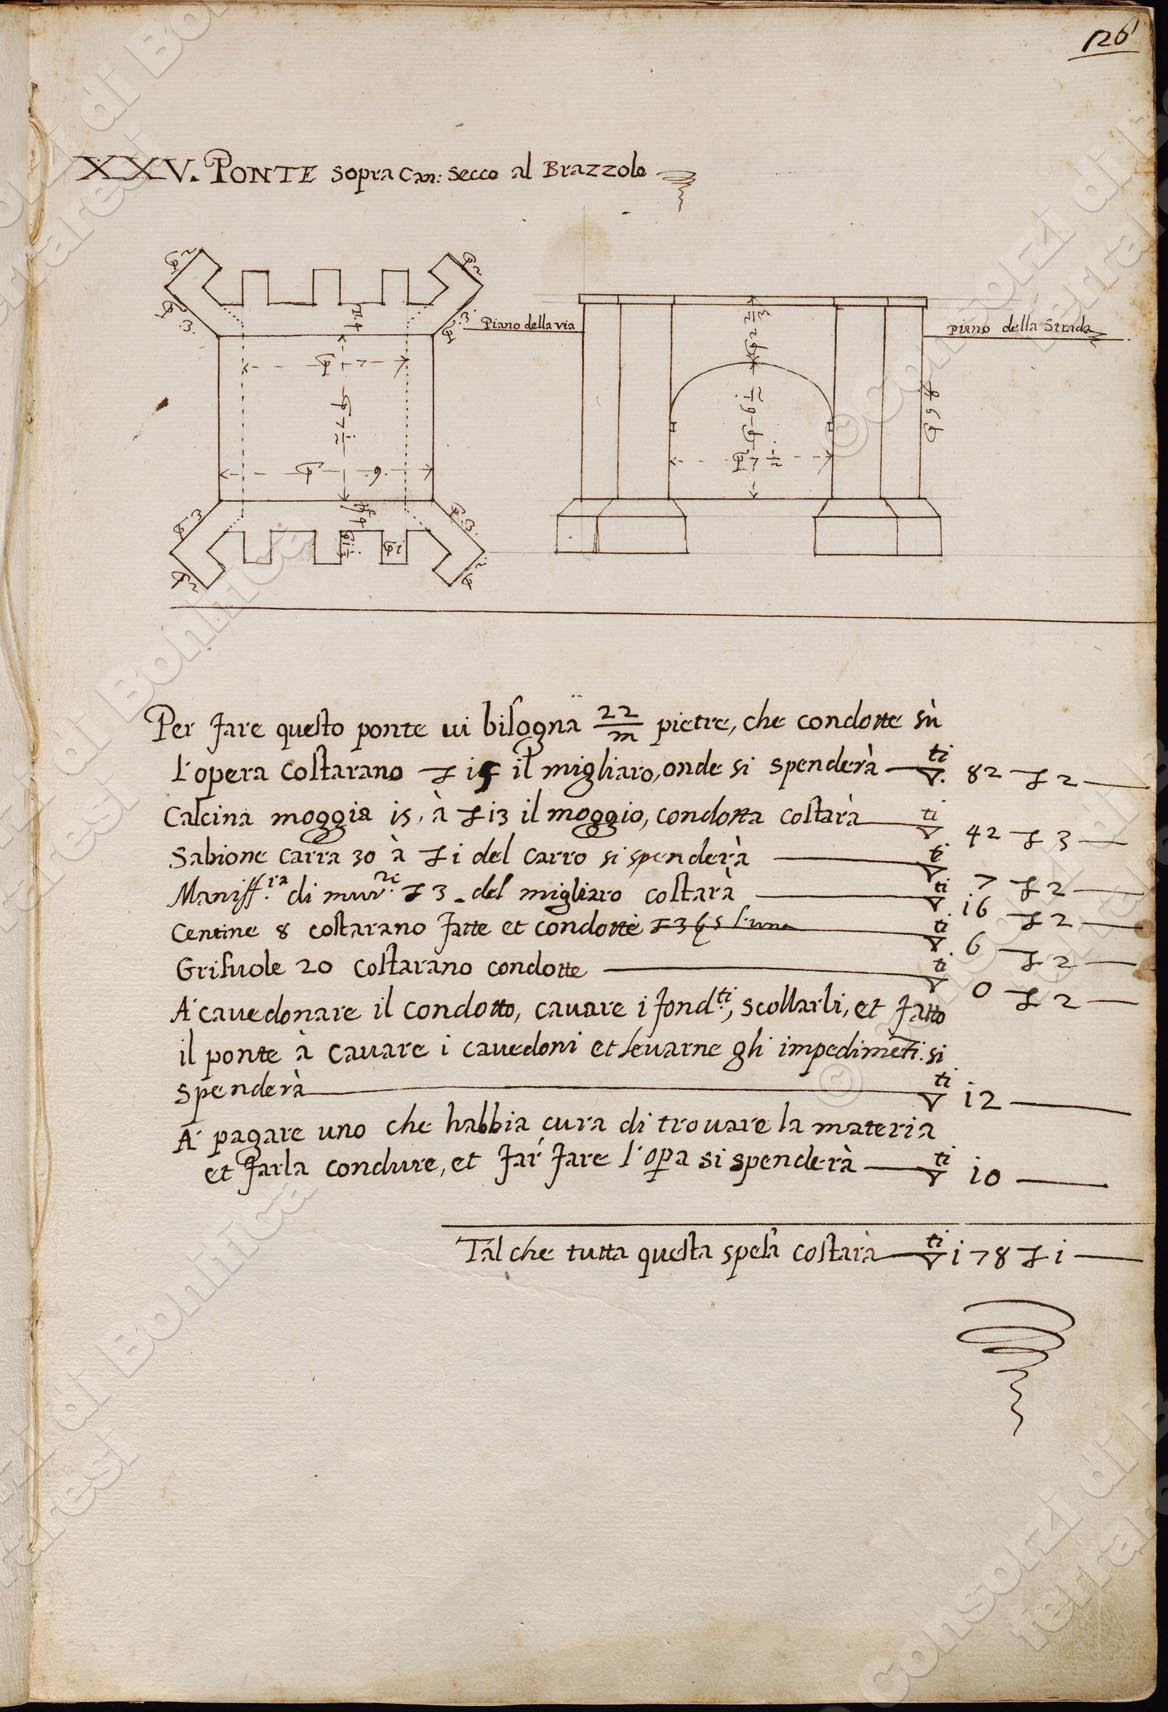 126
XXV. PONTE sopra Can: Secco al Brazzolo
Piano della via
piano della Strada
Per fare questo ponte ui bisogna 22/m pietre, che condotte sù
l'opera costarano £ 15 il migliaro, onde si spenderà ▽ti 82 £ 2
Calcina moggia 15, à £ 13 il moggio, condotta costarà ▽ti 42 £ 3
Sabione carra 30 à £ 1 del carro si spenderà ▽ti 7 £ 2
Maniff.ra di mur.re £ 3 del migliaro costarà ▽ti 16 £ 2
Centine 8 costarano fatte et condotte ▽ti 6 £ 2
Grisuole 20 costarano condotte ▽ti 0 £ 2
A' cauedonare il condotto, cauare i fond.ti, scollarli, et fatto
il ponte à cauare i cauedoni et leuarne gli impedimēti si
spenderà ▽ti 12
A' pagare uno che habbia cura di trouare la materia
et farla condure, et far fare l'opa si spenderà ▽ti 10
Tal che tutta questa spesa costarà ▽ti 178 £ 1
© Consorzi di Bonifica ferraresi